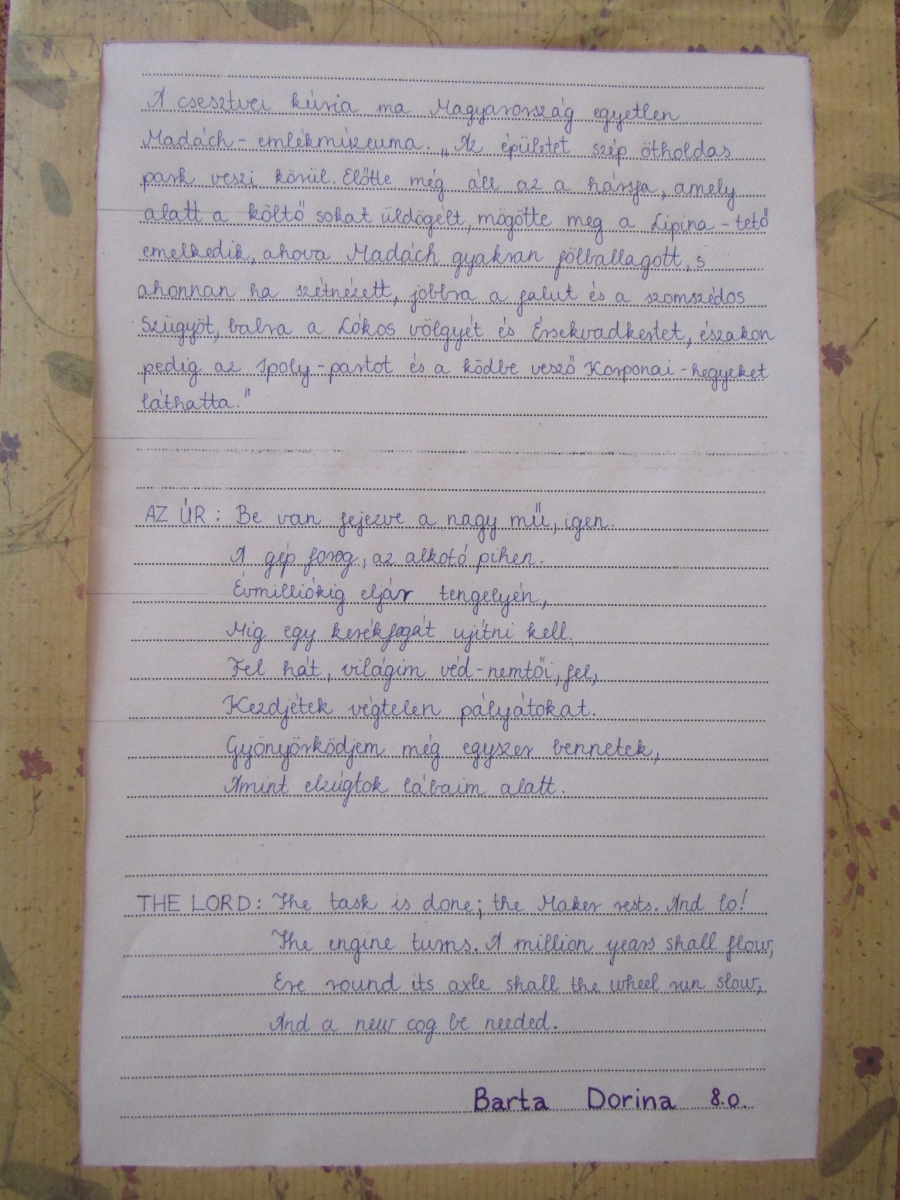 A csesztvei kúria ma Magyarország egyetlen
Madách-emlékmúzeuma. „Az épületet szép ötholdas
park veszi körül. Előtte még áll az a hársfa, amely
alatt a költő sokat üldögélt, mögötte meg a Lipina-tető
emelkedik, ahova Madách gyakran fölballagott, s
ahonnan ha szétnézett, jobbra a falut és a szomszédos
Szügyöt, balra a Lókos völgyét és Érsekvadkertet, északon
pedig az Ipoly-partot és a ködbe vesző Korponai-hegyeket
láthatta."
AZ ÚR: Be van fejezve a nagy mű, igen.
A gép forog, az alkotó pihen.
Évmilliókig eljár tengelyén,
Mig egy kerékfogát ujítni kell.
Fel hát, világim véd-nemtői, fel,
Kezdjétek végtelen pályátokat.
Gyönyörködjem még egyszer bennetek,
Amint elzúgtok lábaim alatt.
THE LORD: The task is done; the Maker rests. And lo!
The engine turns. A million years shall flow,
Ere round its axle shall the wheel run slow,
And a new cog be needed.
Barta Dorina 8.o.